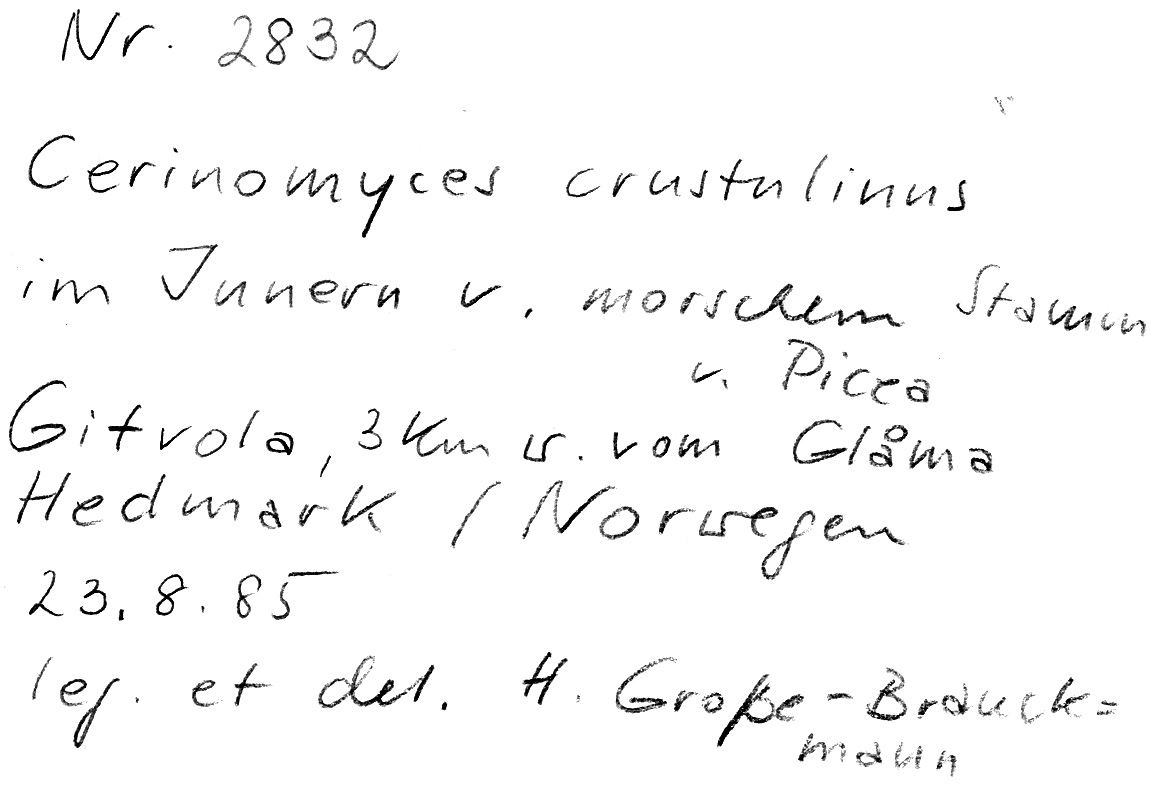 Nr. 2832
Cerinomyces crustulinus
im Innern v. morschem Stamm
v. Picea
Gitvola, 3 Km w. vom Glåma
Hedmark / Norwegen
23. 8. 85
leg. et det. H. Große-Brauck=
mann